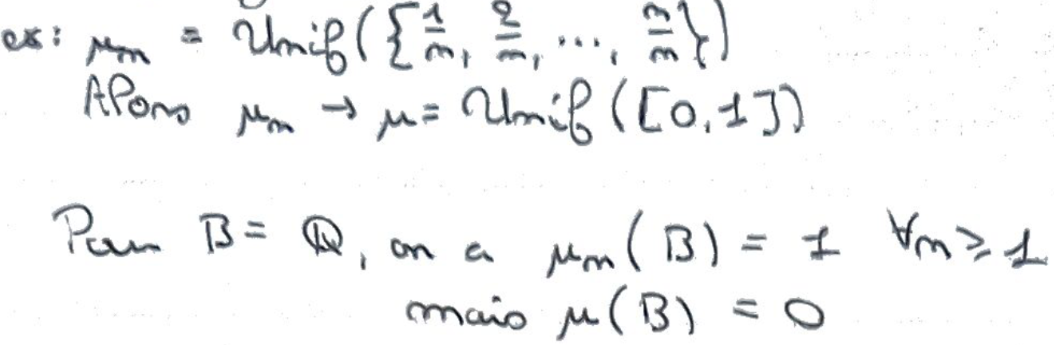 ex: μₙ = Unif({1/n, 2/n, ..., n/n})
Alors μₙ → μ = Unif([0,1])
Pour B = ℚ, on a μₙ(B) = 1 ∀n ≥ 1
mais μ(B) = 0